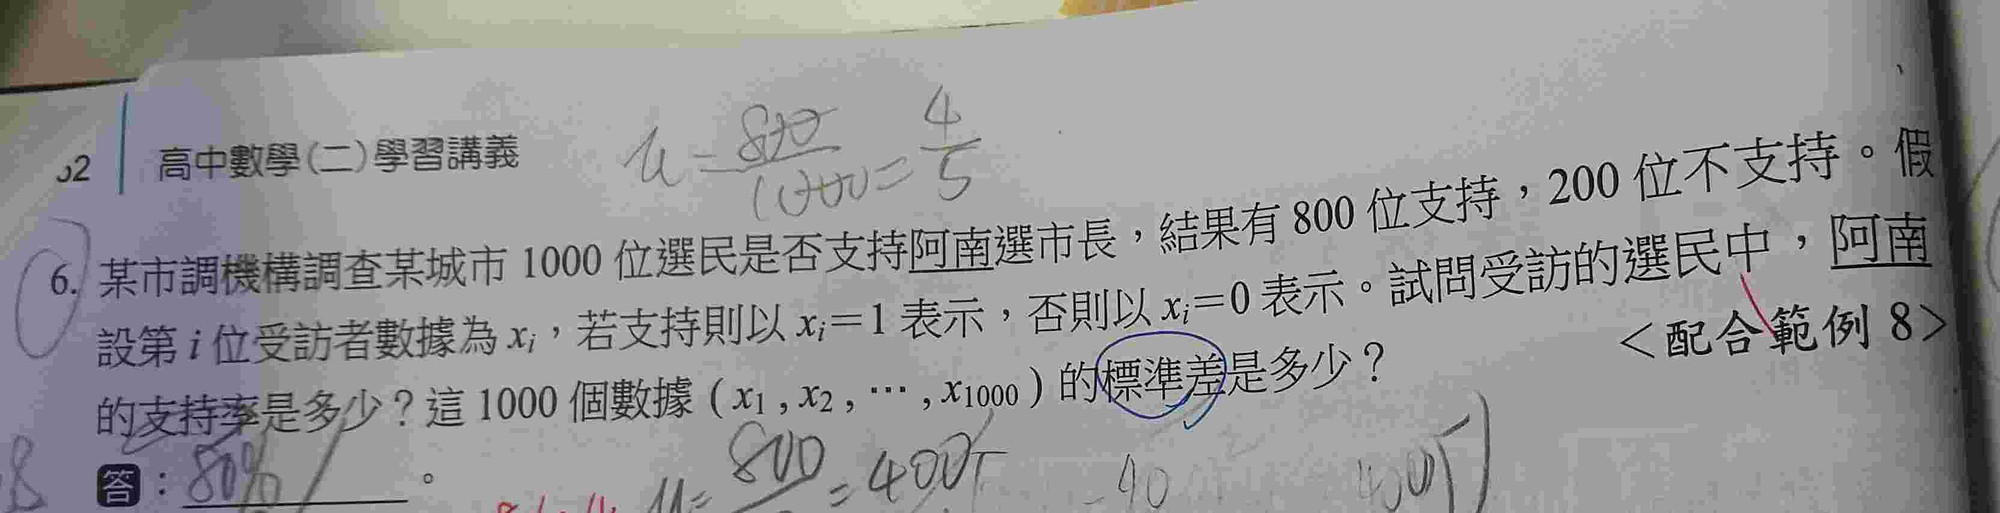 高中數學(二)學習講義
u = 800/1000 = 4/5
6. 某市調機構調查某城市 1000 位選民是否支持阿南選市長，結果有 800 位支持，200 位不支持。假
設第 i 位受訪者數據為 xi，若支持則以 xi=1 表示，否則以 xi=0 表示。試問受訪的選民中，阿南
的支持率是多少？這 1000 個數據 ( x1 , x2 , … , x1000 ) 的標準差是多少？
<配合範例 8>
答：80%。